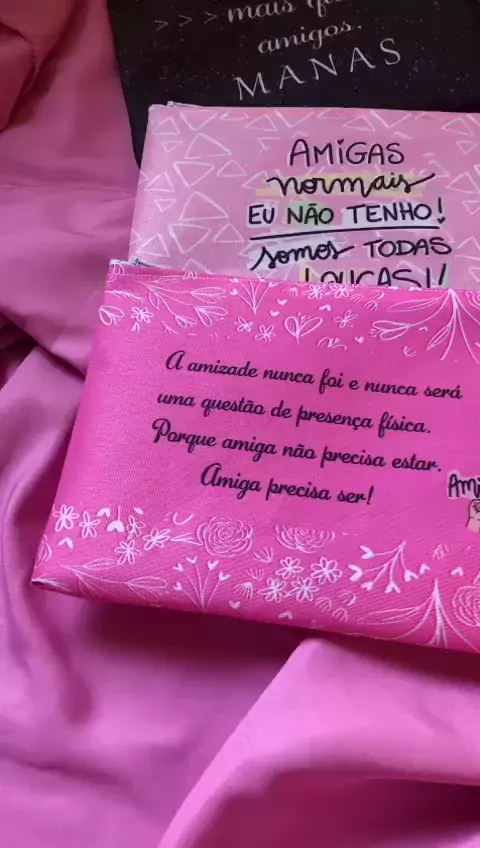 >>> mais
amigos,
MANAS
AMIGAS
normais
EU NÃO TENHO!
somos TODAS
LOUCAS!!
A amizade nunca foi e nunca será
uma questão de presença física.
Porque amiga não precisa estar.
Amiga precisa ser!